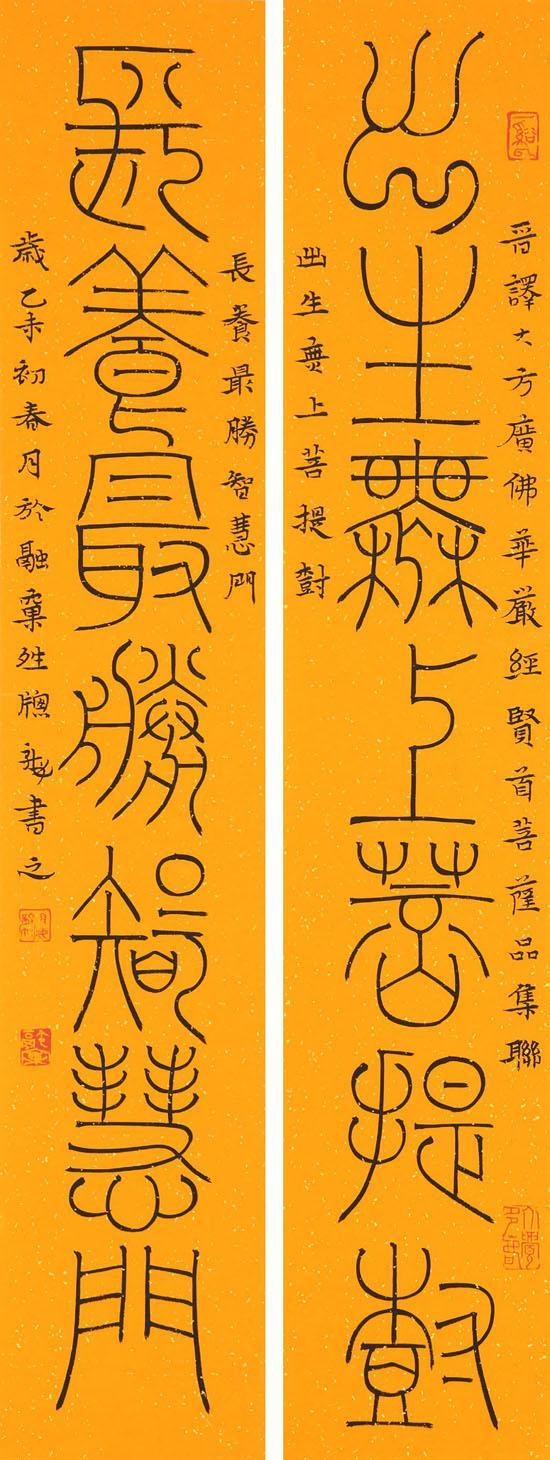 晉譯大方廣佛華嚴經賢首菩薩品集聯
出生無上菩提尌
出生無上菩提尌
長養最勝智慧門
長養最勝智慧門
歲乙未初春月於融 書之